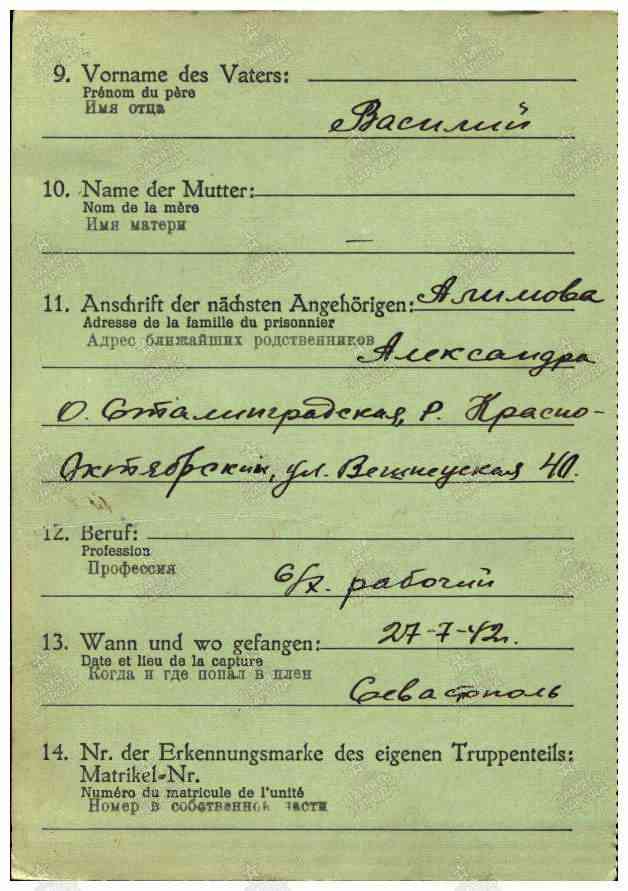 9. Vorname des Vaters:
Prénom du père
Имя отца
Василий
10. Name der Mutter:
Nom de la mère
Имя матери
—
11. Anschrift der nächsten Angehörigen: Алимова
Adresse de la famille du prisonnier
Адрес ближайших родственников Александра
О. Сталинградская, Р. Красно-
октябрьский, ул. 40.
12. Beruf:
Profession
Профессия
с/х. рабочий
13. Wann und wo gefangen: 27-7-42г.
Date et lieu de la capture
Когда и где попал в плен
Севастополь
14. Nr. der Erkennungsmarke des eigenen Truppenteils:
Matrikel-Nr.
Numéro du matricule de l'unité
Номер в собственной части